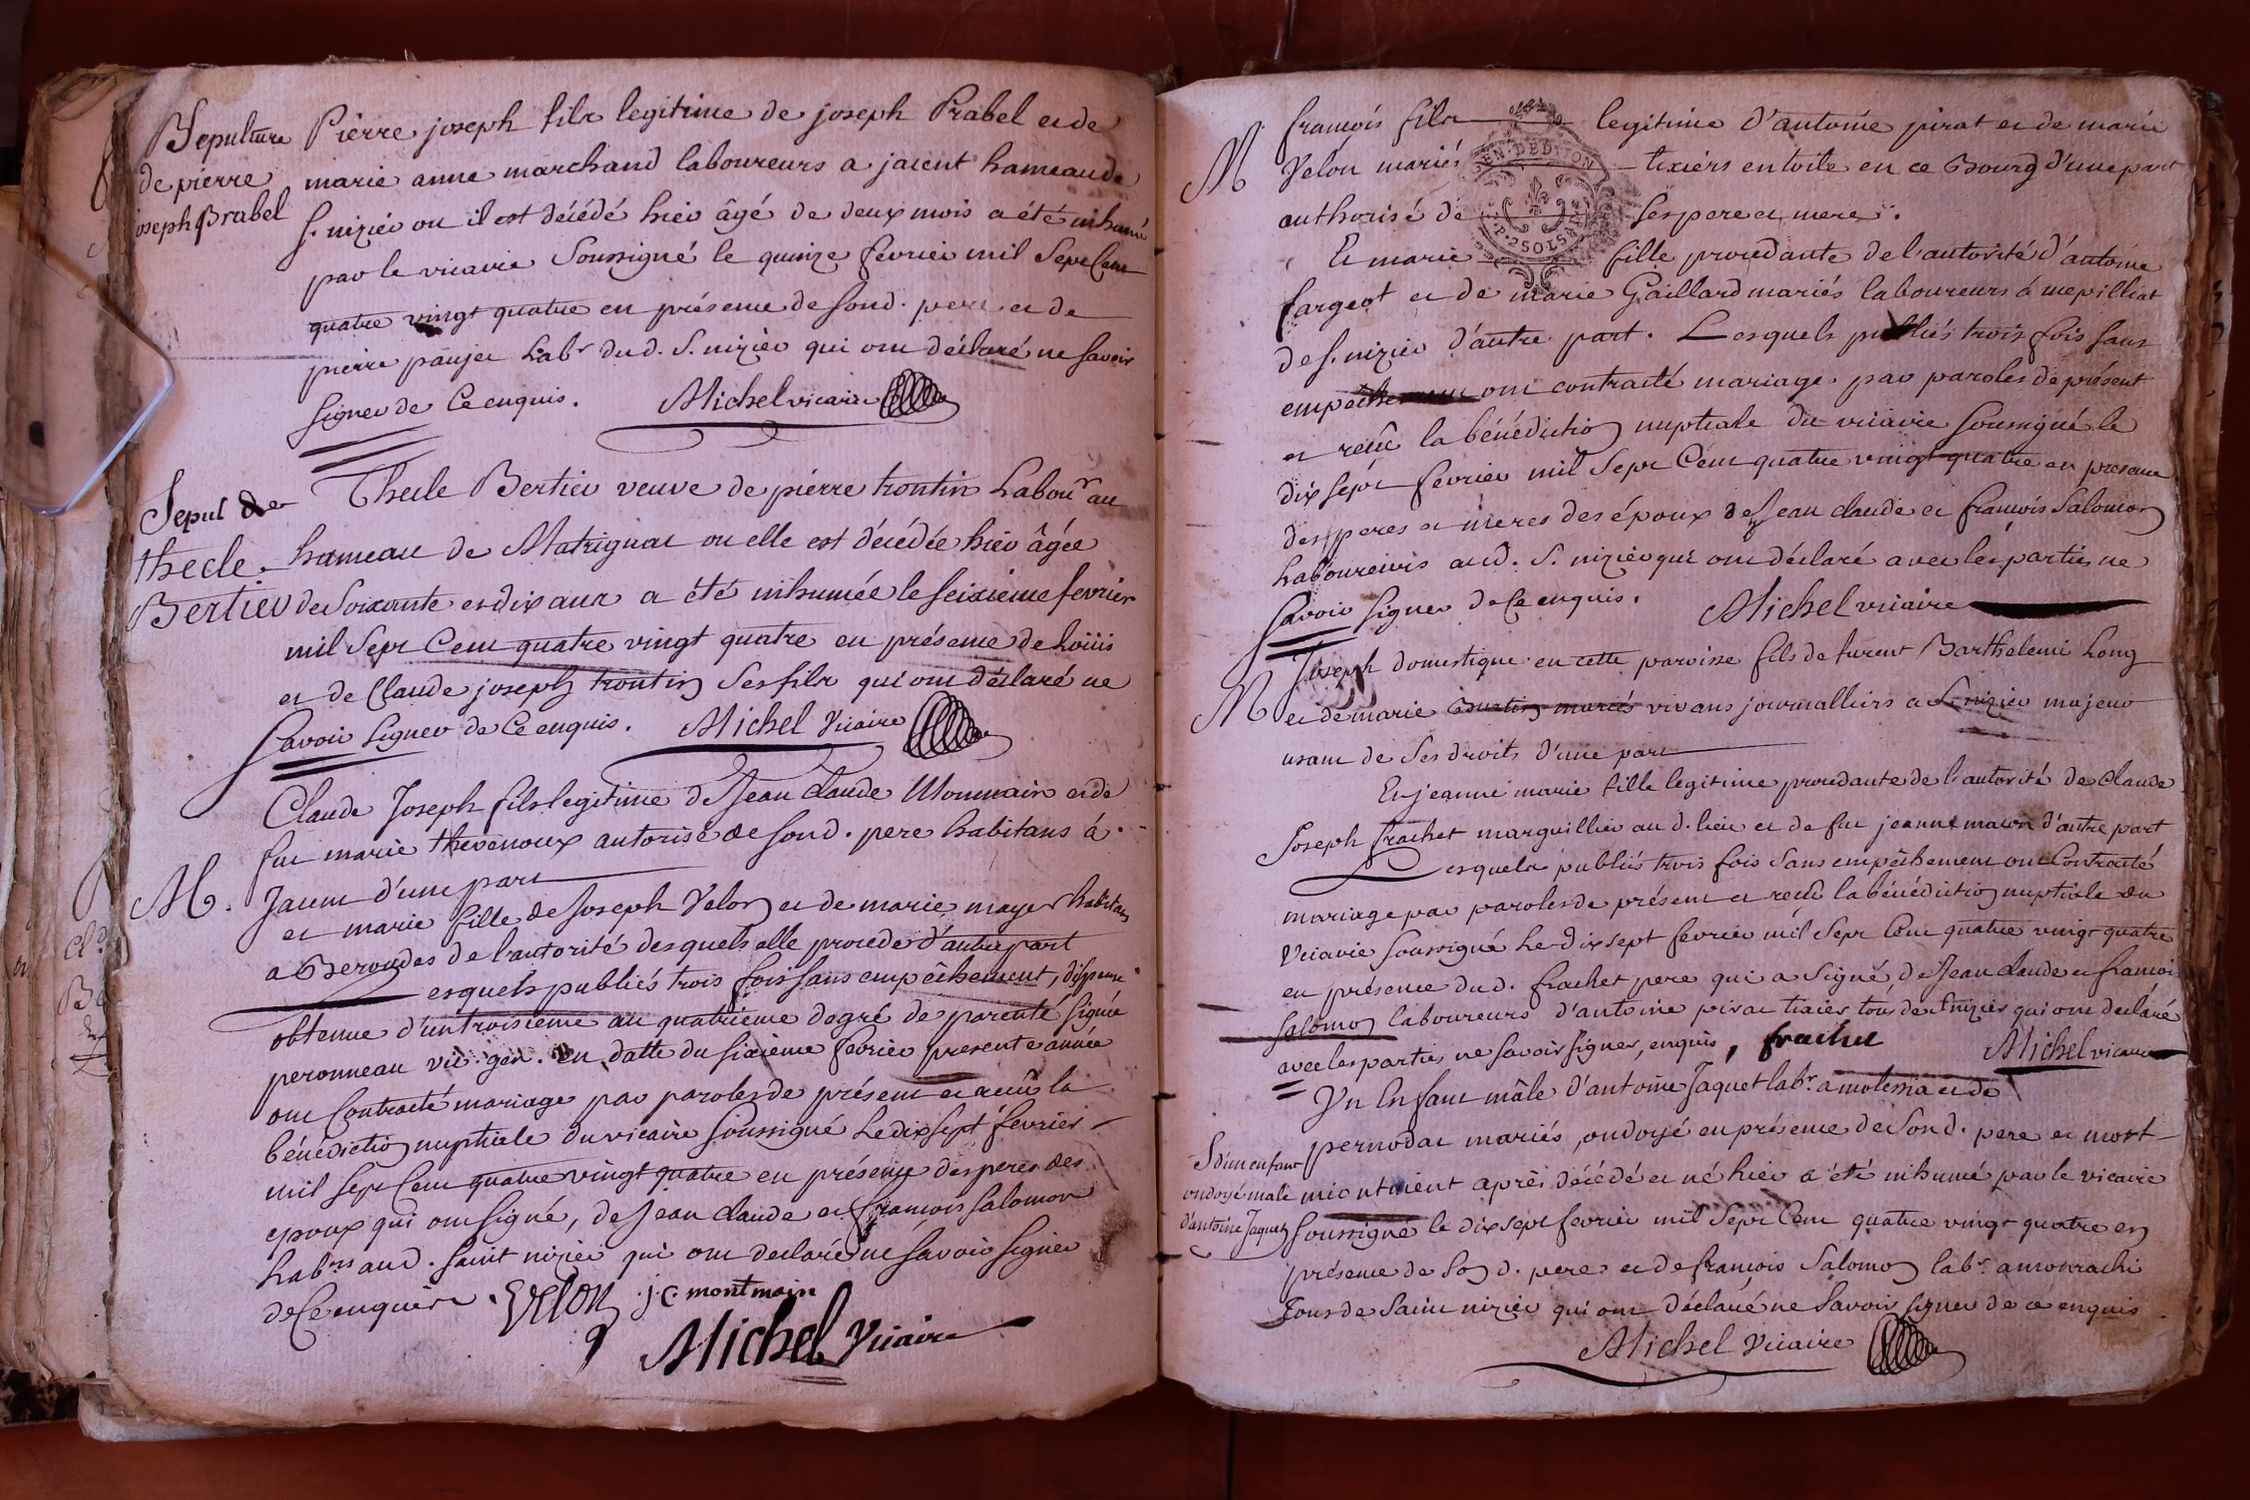 Sepulture
de pierre
joseph Brabel
Pierre joseph fils legitime de joseph Prabel et de
marie anne marchand laboureurs a jacent hameau de
S. nizier ou il est décédé hier âgé de deux mois a été inhumé
par le vicaire Soussigné le quinze fevrier mil Sept Cent
quatre vingt quatre en présence de Son d. pere et de
pierre paujet Labr dud. S. nizier qui ont déclaré ne Savoir
Signer de Ce enquis. Michel vicaire
Sepul de
thecle
Bertier
Thecle Bertier veuve de pierre trontin Labour au
hameau de Matrignat ou elle est décédée hier âgée
de Soixante et dix ans a été inhumée le Seixieme fevrier
mil Sept Cent quatre vingt quatre en présence de Loüis
et de Claude joseph trontin Ses fils qui ont déclaré ne
Savoir Signer de Ce enquis. Michel Vicaire
M.
Claude Joseph fils legitime de Jean Claude Monmain et de
fut marie thevenoux autorisé de Son d. pere habitans à
Jacent d'une part
et marie fille de Joseph Velon et de marie mayer habitans
a Beroudes de l'autorité desquels elle procede d'autre part
esquels publiés trois fois Sans empêchement, dispense
obtenue d'un troisieme au quatrieme degré de parenté Signée
peronneau vic. gen. en datte du Sixieme fevrier presente année
ont Contracté mariage par paroles de présent et reçû la
bénédiction nuptiale du vicaire Soussigné Le dix Sept fevrier
mil Sept Cent quatre vingt quatre en présence des peres des
epoux qui ont Signé, de Jean Claude et François Salomon
Labrs aud. Saint nizier qui ont declaré ne Savoir Signer
de Ce enquis. VELON j. c. montmain
Michel Vicaire
M
françois fils legitime d'antoine pirat et de marie
Velon mariés tixiers en toile en ce Bourg d'une part
authorisé de Ses pere et mere.
GEN. DE DIJON
Et marie fille procedante de l'autorité d'antoine
fargeot et de marie Gaillard mariés laboureurs à mepilliat
de S. nizier d'autre part. Lesquels publiés trois fois Sans
empêchement ont contracté mariage par paroles de présent
et reçû la bénédiction nuptiale du vicaire Soussigné le
dix Sept fevrier mil Sept Cent quatre vingt quatre en presence
des peres et meres des époux de Jean claude et françois Salomon
Laboureurs aud. S. nizier qui ont déclaré avec les parties ne
Savoir Signer de Ce enquis. Michel vicaire
M
Joseph domestique en cette paroisse fils de furent Barthelemi Long
et de marie Burtin mariés vivans journalliers a S. nizier majeur
usant de Ses droits d'une part
Et jeanne marie fille legitime procedante de l'autorité de Claude
Joseph frachet marguillier aud. lieu et de fut jeanne d'autre part
esquels publiés trois fois Sans empêchement ont Contracté
mariage par paroles de présent et reçû la bénédiction nuptiale du
Vicaire Soussigné Le dix sept fevrier mil Sept Cent quatre vingt quatre
en présence dud. frachet pere qui a Signé, de Jean Claude et françois
Salomon laboureurs d'antoine pirat tixier tous de S. nizier qui ont declaré
avec les parties ne Savoir Signer, enquis, frachet Michel vicaire
S d'un enfant
ondoyé male
d'antoine Jaquet
Un Enfant mâle d'antoine Jaquet labr. a molessia et de
pernodat mariés, ondoyé en présence de Son d. pere et mort
après décédé et né hier a été inhumé par le vicaire
Soussigné le dix Sept fevrier mil Sept Cent quatre vingt quatre en
présence de Son d. pere et de françois Salomon labr. a montrachi
Tous de Saint nizier qui ont déclaré ne Savoir Signer de ce enquis
Michel Vicaire